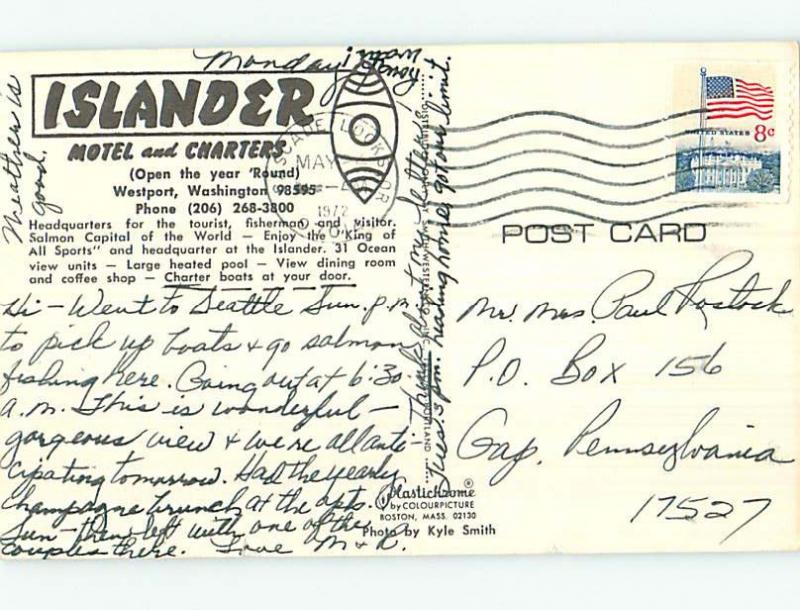 Monday
ISLANDER
MOTEL and CHARTERS
(Open the year 'Round)
Westport, Washington 98595
Phone (206) 268-3800
Headquarters for the tourist, fisherman and visitor.
Salmon Capital of the World – Enjoy the "King of
All Sports" and headquarter at the Islander. 31 Ocean
view units – Large heated pool – View dining room
and coffee shop – Charter boats at your door.
Weather is
good.
Hi - Went to Seattle Sun. p.m.
to pick up boats & go salmon
fishing here. Going out at 6:30
a.m. This is wonderful -
gorgeous view & we're all anti-
cipating tomorrow. Had the yearly
champagne brunch at the apts.
Sun - then left with one of the
couples there. Love M & R.
Tues. 3 p.m.
got our limit.
MAY
1972
UNITED STATES 8c
POST CARD
Mr. Mrs. Paul Rostock
P.O. Box 156
Gap, Pennsylvania
17527
Plastichrome®
by COLOURPICTURE
BOSTON, MASS. 02130
Photo by Kyle Smith